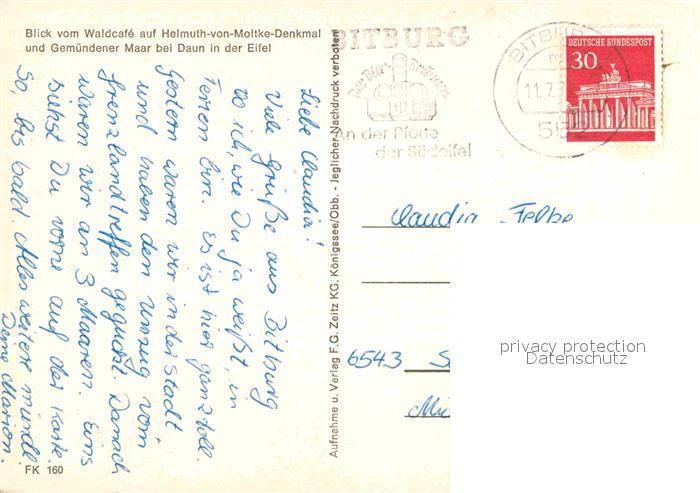 Blick vom Waldcafé auf Helmuth-von-Moltke-Denkmal
und Gemündener Maar bei Daun in der Eifel
Liebe Claudia!
Viele Grüße aus Bitburg
wo ich, wie Du ja weißt, in
Ferien bin. Es ist hier ganz toll.
Gestern waren wir in der Stadt
und haben den Umzug vom
Grenzlandtreffen geguckt. Danach
waren wir an 3 Maaren. Eins
siehst Du vorne auf der Karte.
So, bis bald. Alles weitere mündl.
Deine Marion.
FK 160
Aufnahme u. Verlag F.G. Zeitz KG, Königssee/Obb. - Jeglicher Nachdruck verboten
BITBURG
An der Pforte
der Südeifel
BITBURG
11.7.
552
DEUTSCHE BUNDESPOST
30
Claudia Felbe
6543
privacy protection
Datenschutz